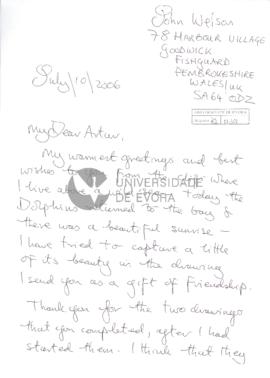 John Welson
78 HARBOUR VILLAGE
GOODWICK
FISHGUARD
PEMBROKESHIRE
WALES/UK
SA64 0DZ
July/10/2006
My Dear Artur,
My warmest greetings and best
wishes to you from the
where
I live above a
Today the
Dolphins returned to the bay &
there was a beautiful sunrise –
I have tried to capture a little
of its beauty in the drawing
I send you as a gift of Friendship.
Thank you for the two drawings
that you completed, after I had
started them. I think that they
UNIVERSIDADE
DE ÉVORA